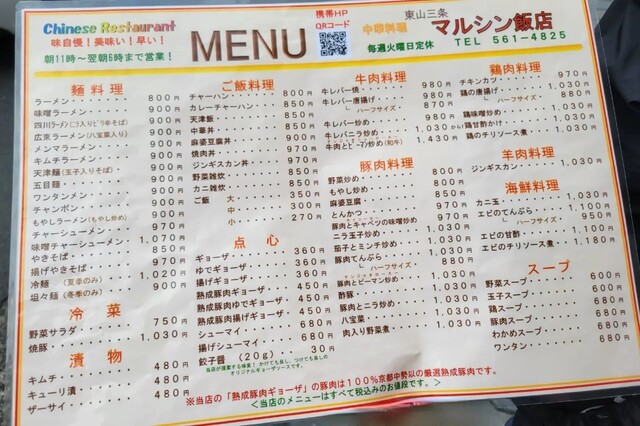 Chinese Restaurant
味自慢！美味い！早い！
朝11時〜翌朝6時まで営業！
MENU
携帯HP
QRコード
東山三条
中華料理 マルシン飯店
毎週火曜日定休 TEL 561-4825
麺料理
ラーメン 800円
味噌ラーメン 900円
四川ラーメン(ニラ入りピリ辛そば) 900円
広東ラーメン(八宝菜入り) 900円
メンマラーメン 900円
キムチラーメン 900円
天津麺(玉子入りそば) 900円
五目麺 900円
ワンタンメン 900円
チャンポン 900円
もやしラーメン(もやし炒め) 900円
チャーシューメン 970円
味噌チャーシューメン 1,070円
やきそば 850円
揚げやきそば 970円
冷麺 (夏季のみ) 1,020円
坦々麺 (冬季のみ) 970円
冷菜
野菜サラダ 750円
焼豚 1,030円
漬物
キムチ 480円
キューリ漬 480円
ザーサイ 480円
ご飯料理
チャーハン 800円
カレーチャーハン 850円
天津飯 850円
中華丼 850円
麻婆豆腐丼 950円
焼肉丼 970円
ジンギスカン丼 970円
野菜雑炊 850円
カニ雑炊 850円
ご飯 大 350円
中 300円
小 270円
点心
ギョーザ 360円
ゆでギョーザ 360円
揚げギョーザ 360円
熟成豚肉ギョーザ 380円
熟成豚肉ゆでギョーザ 380円
熟成豚肉揚げギョーザ 380円
シューマイ 680円
揚げシューマイ 680円
餃子醤 (20g) 30円
当店が提案する味変！かけても良し、つけても良しの
オリジナルギョーザソースです。
牛肉料理
牛レバー焼 980円
牛レバー唐揚げ 980円
┗ ハーフサイズ 870円
牛レバー炒め 980円
牛レバニラ炒め 1,030円
牛肉とピーマン炒め(和牛) 1,430円
豚肉料理
野菜炒め 850円
もやし炒め 850円
麻婆豆腐 850円
とんかつ 1,030円
豚肉とキャベツの味噌炒め 1,030円
ニラ玉子炒め 1,030円
茄子とミンチ炒め 1,030円
豚肉てんぷら 1,030円
┗ ハーフサイズ 880円
豚肉とピーマン炒め 1,030円
酢豚 1,030円
豚肉とニラ炒め 1,030円
八宝菜 1,030円
肉入り野菜煮 1,030円
鶏肉料理
チキンカツ 970円
鶏の唐揚げ 1,030円
┗ ハーフサイズ 880円
鶏味噌炒め 1,030円
鶏甘酢かけ 1,030円
鶏のチリソース煮 1,030円
羊肉料理
ジンギスカン 1,030円
海鮮料理
カニ玉 1,030円
エビのてんぷら 1,100円
┗ ハーフサイズ 950円
エビの甘酢 1,100円
エビのチリソース煮 1,180円
スープ
野菜スープ 600円
玉子スープ 600円
鶏スープ 680円
豚肉スープ 680円
わかめスープ 680円
ワンタン 680円
※当店の「熟成豚肉ギョーザ」の豚肉は100%京都中勢以の厳選熟成豚肉です。
＜当店のメニューはすべて税込みのお値段です。＞